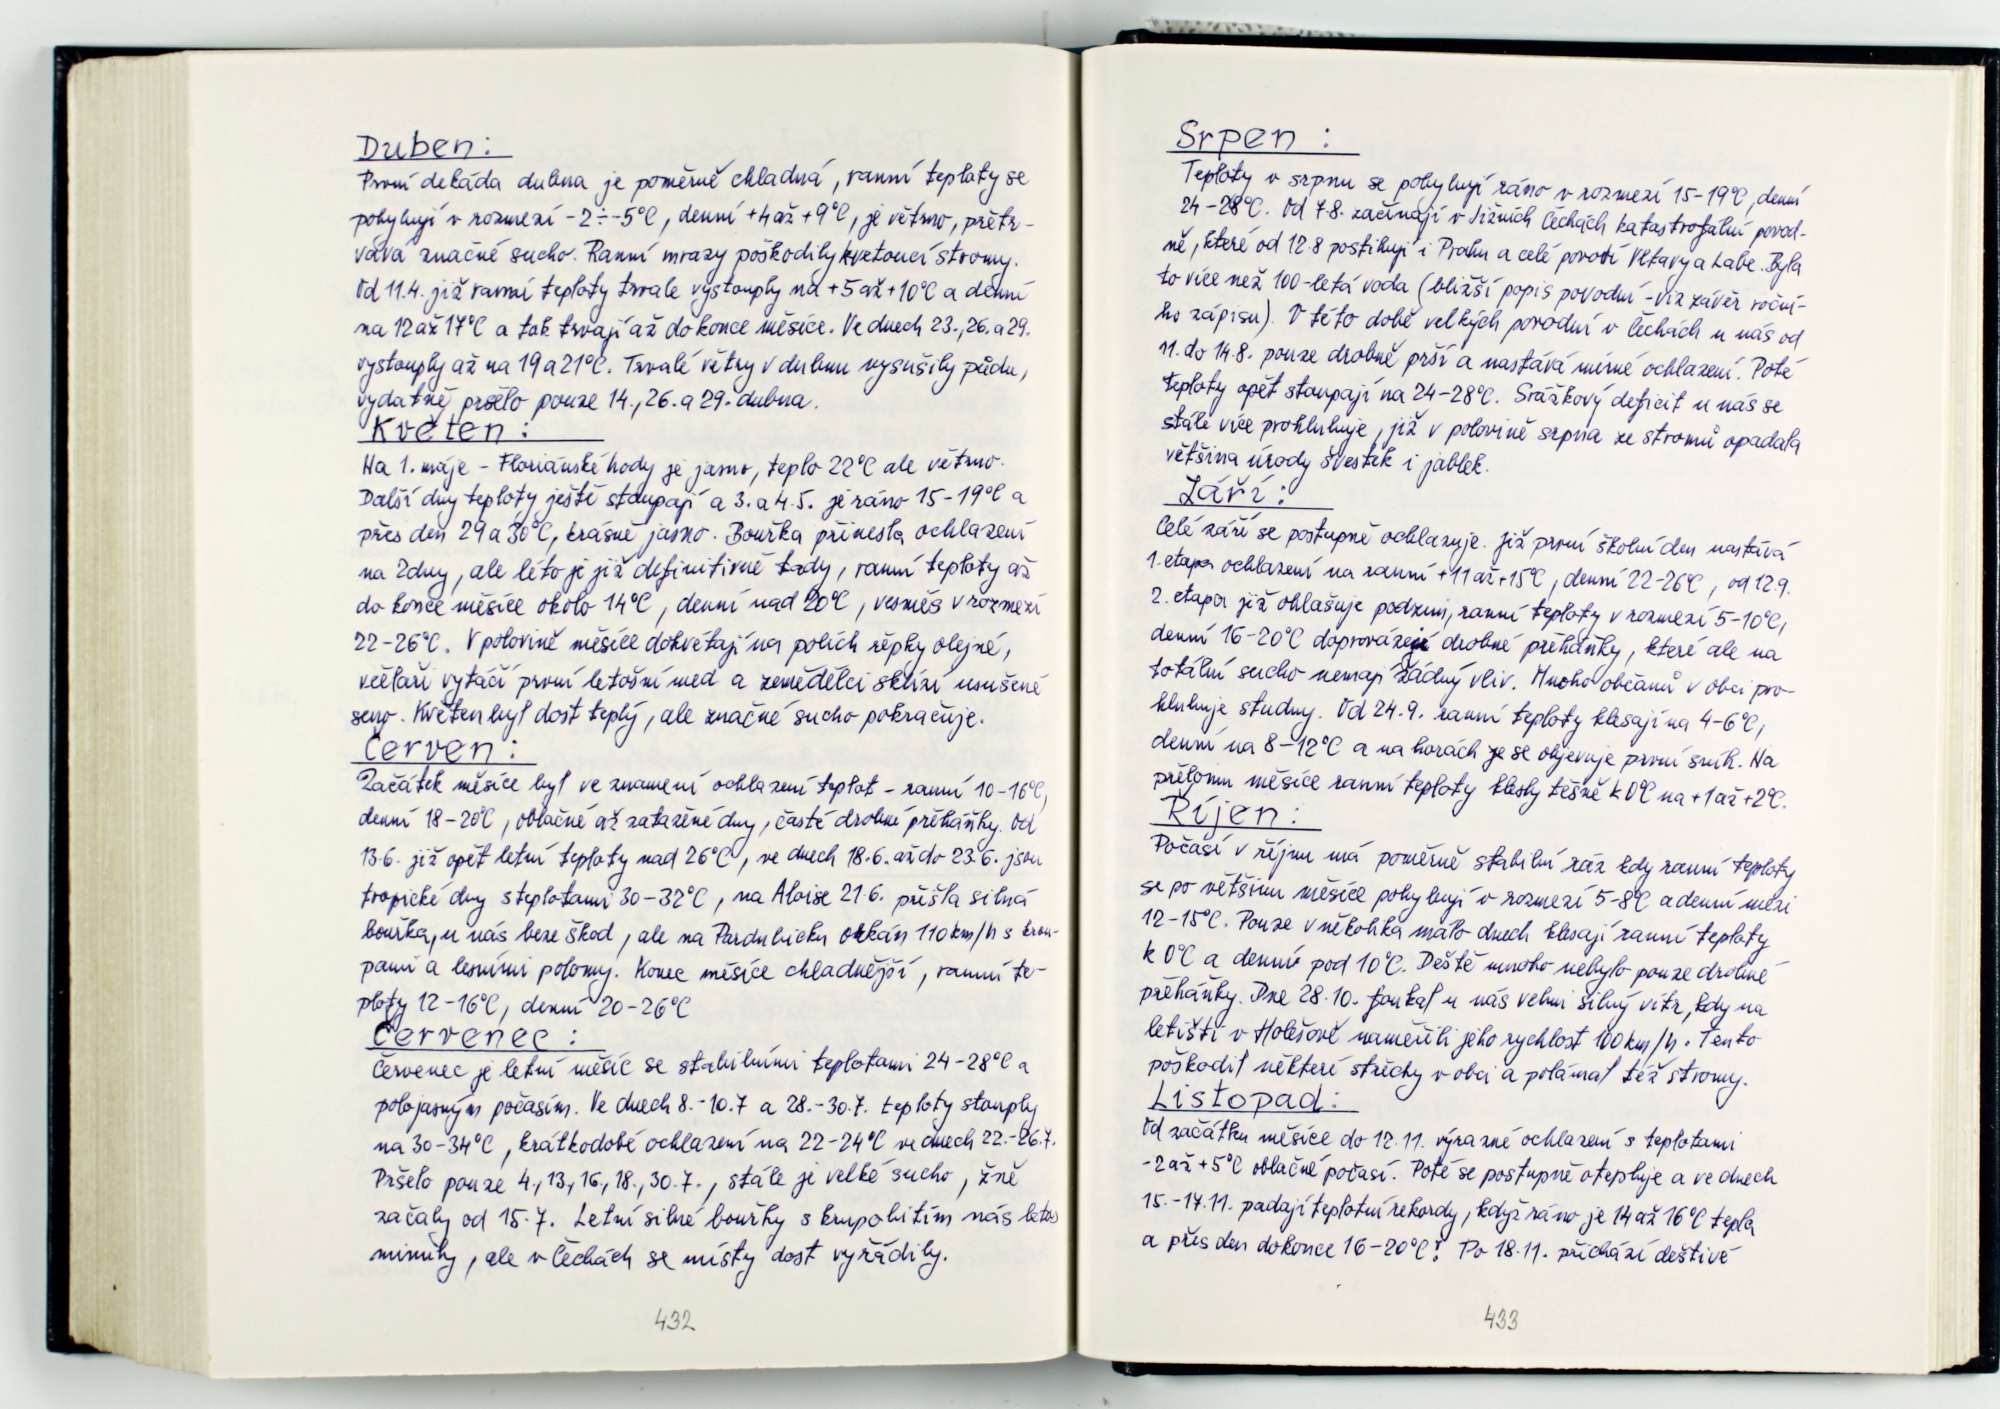 Duben:
První dekáda dubna je poměrně chladná, ranní teploty se
pohybují v rozmezí -2÷-5°C, denní +4 až +9°C, je větrno, přetr-
vává značné sucho. Ranní mrazy poškodily kvetoucí stromy.
Od 11.4. již ranní teploty trvale vystouply na +5 až +10°C a denní
na 12 až 17°C a tak trvají až do konce měsíce. Ve dnech 23., 26. a 29.
vystouply až na 19 a 21°C. Trvalé větry v dubnu vysušily půdu,
vydatně pršelo pouze 14., 26. a 29. dubna.
Květen:
Na 1. máje - Floriánské hody je jasno, teplo 22°C ale větrno.
Další dny teploty ještě stoupají a 3. a 4.5. je ráno 15-19°C a
přes den 29 a 30°C, krásně jasno. Bouřka přinesla ochlazení
na 2 dny, ale léto je již definitivně tady, ranní teploty až
do konce měsíce okolo 14°C, denní nad 20°C, vesměs v rozmezí
22-26°C. V polovině měsíce dokvétají na polích řepky olejné,
včelaři vytáčí první letošní med a zemědělci sklízí usušené
seno. Květen byl dost teplý, ale značné sucho pokračuje.
Červen:
Začátek měsíce byl ve znamení ochlazení teplot - ranní 10-16°C,
denní 18-20°C, oblačné až zatažené dny, časté drobné přeháňky. Od
13.6. již opět letní teploty nad 26°C, ve dnech 18.6. až do 23.6. jsou
tropické dny s teplotami 30-32°C, na Aloise 21.6. přišla silná
bouřka, u nás beze škod, ale na Pardubicku orkán 110 km/h s krou-
pami a lesními polomy. Konec měsíce chladnější, ranní te-
ploty 12-16°C, denní 20-26°C
Červenec:
Červenec je letní měsíc se stabilními teplotami 24-28°C a
polojasným počasím. Ve dnech 8.-10.7 a 28.-30.7. teploty stouply
na 30-34°C, krátkodobé ochlazení na 22-24°C ve dnech 22.-26.7.
Pršelo pouze 4., 13, 16, 18., 30.7., stále je velké sucho, žně
začaly od 15.7. Letní silné bouřky s krupobitím nás letos
minuly, ale v Čechách se místy dost vyřádily.
432
Srpen:
Teploty v srpnu se pohybují ráno v rozmezí 15-19°C, denní
24-28°C. Od 7.8. začínají v Jižních Čechách katastrofální povod-
ně, které od 12.8 postihují i Prahu a celé povodí Vltavy a Labe. Byla
to více než 100-letá voda (bližší popis povodní - viz závěr roční-
ho zápisu). V této době velkých povodní v Čechách u nás od
11. do 14.8. pouze drobně prší a nastává mírné ochlazení. Poté
teploty opět stoupají na 24-28°C. Srážkový deficit u nás se
stále více prohlubuje, již v polovině srpna ze stromů opadala
většina úrody švestek i jablek.
Září:
Celé září se postupně ochlazuje. Již první školní den nastává
1. etapa ochlazení na ranní +11 až +15°C, denní 22-26°C, od 12.9.
2. etapa již ohlašuje podzim, ranní teploty v rozmezí 5-10°C,
denní 16-20°C doprovázejí drobné přeháňky, které ale na
totální sucho nemají žádný vliv. Mnoho občanů v obci pro-
hlubuje studny. Od 24.9. ranní teploty klesají na 4-6°C,
denní na 8-12°C a na horách je se objevuje první sníh. Na
přelomu měsíce ranní teploty klesly těšně k 0°C na +1 až +2°C.
Říjen:
Počasí v říjnu má poměrně stabilní ráz kdy ranní teploty
se po většinu měsíce pohybují v rozmezí 5-8°C a denní mezi
12-15°C. Pouze v několika málo dnech klesají ranní teploty
k 0°C a denní pod 10°C. Deště mnoho nebylo pouze drobné
přeháňky. Dne 28.10. foukal u nás velmi silný vítr, kdy na
letišti v Holešově naměřili jeho rychlost 100 km/h. Tento
poškodil některé střechy v obci a polámal též stromy.
Listopad:
Od začátku měsíce do 12.11. výrazné ochlazení s teplotami
-2 až +5°C oblačné počasí. Poté se postupně otepluje a ve dnech
15.-17.11. padají teplotní rekordy, když ráno je 14 až 16°C tepla
a přes den dokonce 16-20°C! Po 18.11. přichází deštivé
433